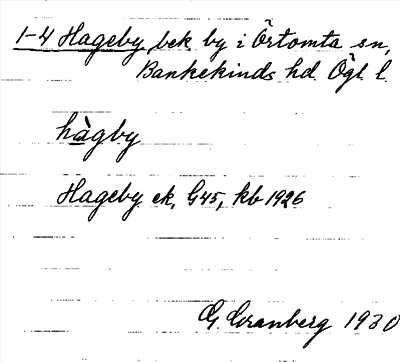 1-4 Hageby, bek. by i Örtomta sn,
Bankekinds hd Ögl. l.
hàgby
Hageby ek, G45, kb 1926
G. Granberg 1930